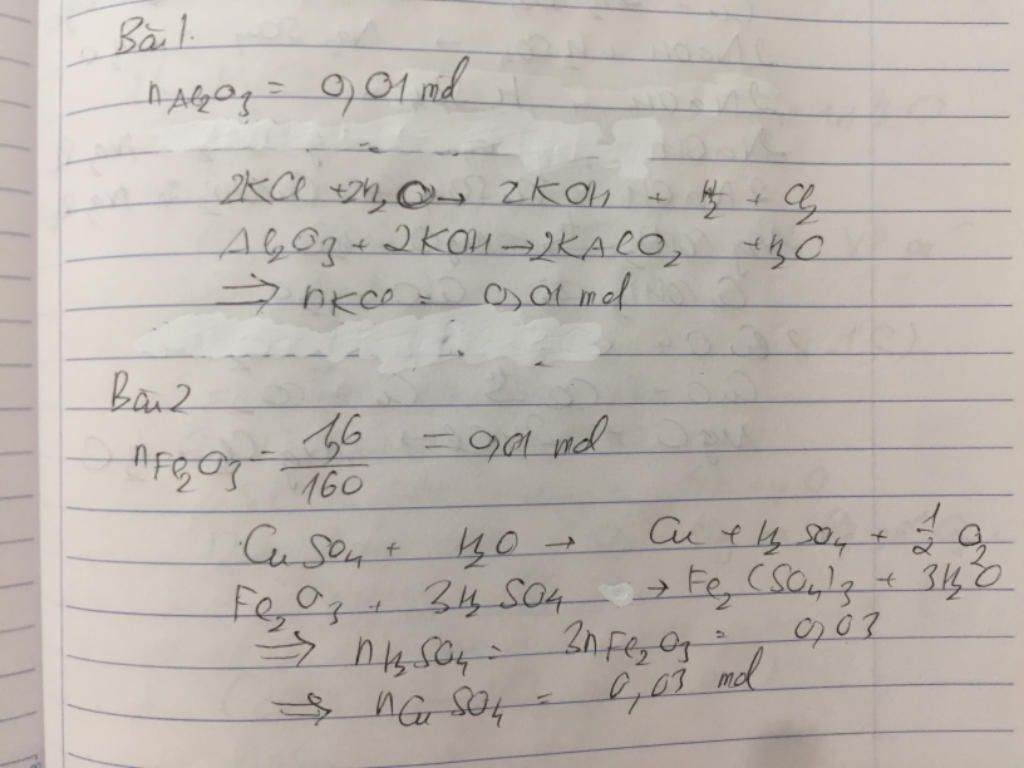 Bài 1.
nAl2O3 = 0,01 mol
2KCl + 2H2O → 2KOH + H2 + Cl2
Al2O3 + 2KOH → 2KAlO2 + H2O
⇒ nKCl = 0,01 mol
Bài 2
nFe2O3 = 1,6/160 = 0,01 mol
CuSO4 + H2O → Cu + H2SO4 + 1/2 O2
Fe2O3 + 3H2SO4 → Fe2(SO4)3 + 3H2O
⇒ nH2SO4 = 3nFe2O3 = 0,03
⇒ nCuSO4 = 0,03 mol